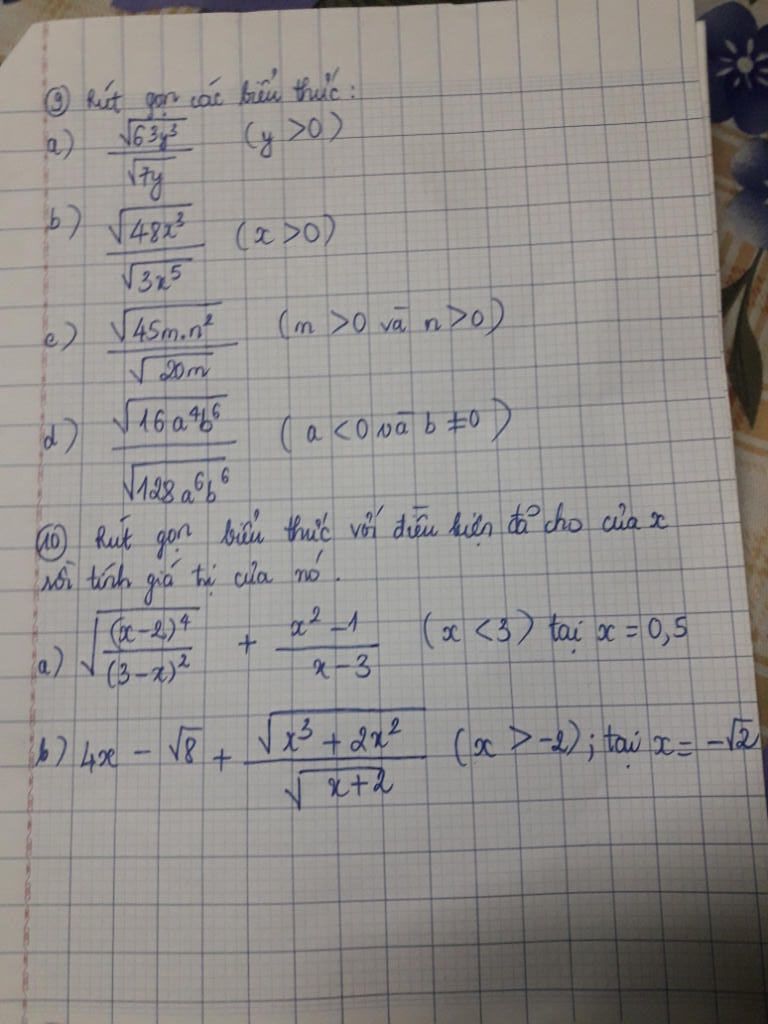 ⑨ Rút gọn các biểu thức:
a) √63y³ / √7y (y >0)
b) √48x³ / √3x⁵ (x >0)
c) √45m.n² / √20m (m >0 và n >0)
d) √16a⁴b⁶ / √128a⁶b⁶ (a <0 và b ≠0)
⑩ Rút gọn biểu thức với điều kiện đã cho của x
rồi tính giá trị của nó.
a) √((x-2)⁴ / (3-x)²) + (x² -1) / (x-3) (x <3) tại x = 0,5
b) 4x - √8 + √x³ + 2x² / √x+2 (x > -2); tại x = -√2